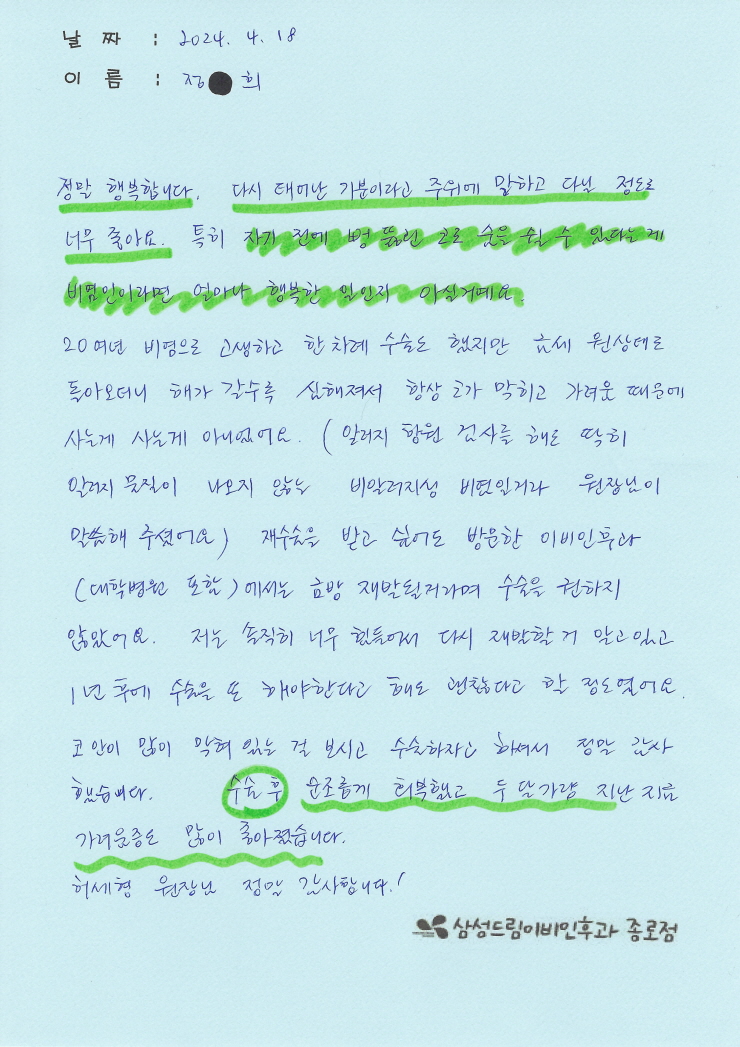 날 짜 : 2024. 4. 18
이 름 : 정 희
정말 행복합니다. 다시 태어난 기분이라고 주위에 말하고 다닐 정도로
너무 좋아요. 특히 자기 전에 뻥 뚫린 코로 숨을 쉴 수 있다는게
비염인이라면 얼마나 행복한 일인지 아실거예요.
20여년 비염으로 고생하고 한차례 수술도 했지만 금세 원상태로
돌아오더니 해가 갈수록 심해져서 항상 코가 막히고 가려운 때문에
사는게 사는게 아니었어요. (알러지 항원 검사를 해도 딱히
알러지 물질이 나오지 않는 비알러지성 비염일거라 원장님이
말씀해 주셨어요) 재수술을 받고 싶어도 방문한 이비인후과
(대학병원 포함)에서는 금방 재발될거라며 수술을 권하지
않았어요. 저는 솔직히 너무 힘들어서 다시 재발할 거 알고 있고
1년 후에 수술을 또 해야한다고 해도 괜찮다고 할 정도였어요.
코 안이 많이 막혀 있는 걸 보시고 수술하자고 하셔서 정말 감사
했습니다. 수술 후 순조롭게 회복했고 두 달가량 지난 지금
가려운증도 많이 좋아졌습니다.
허세형 원장님 정말 감사합니다!
삼성드림이비인후과 종로점